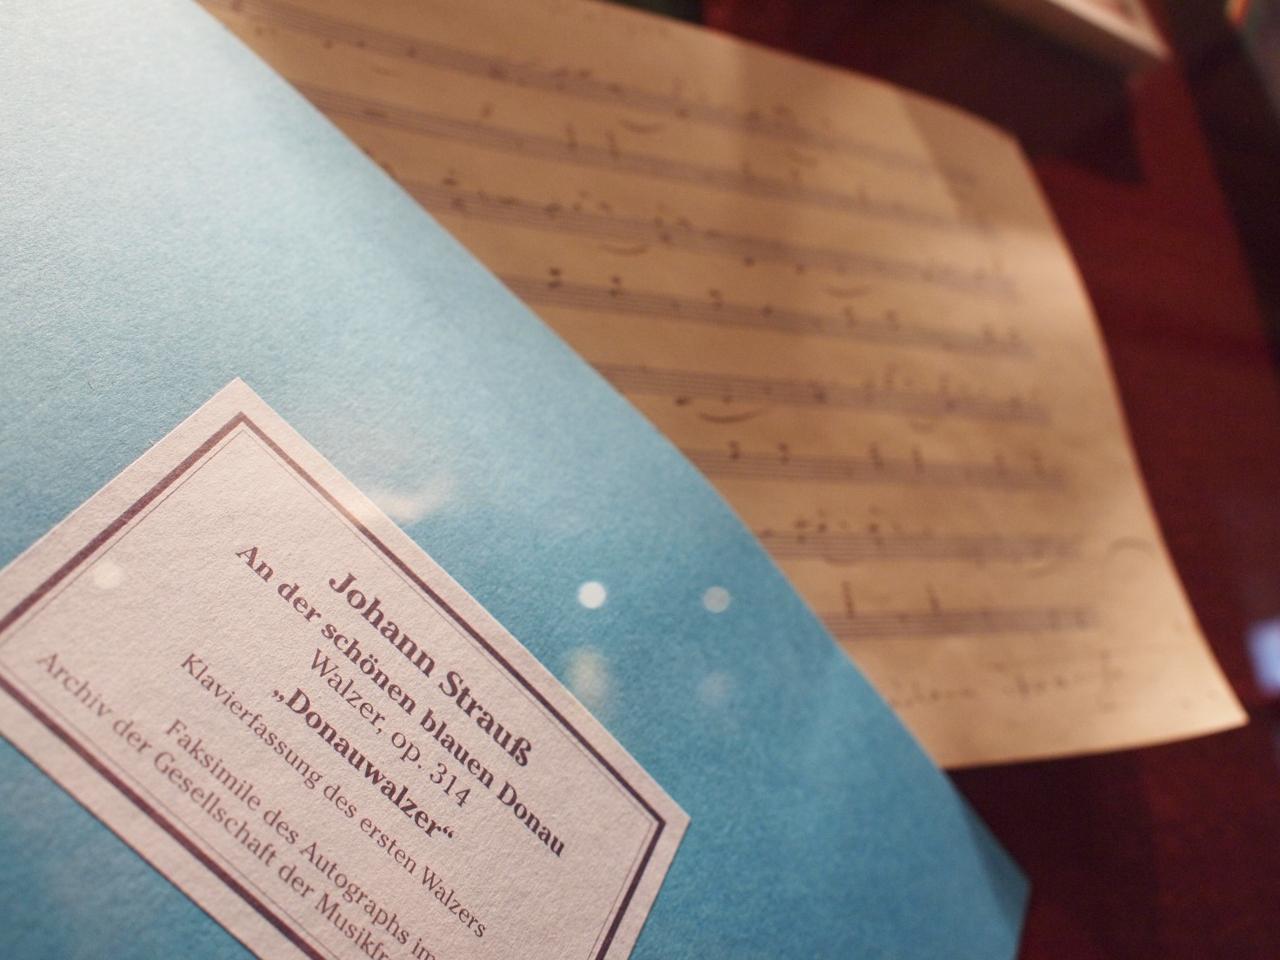 Johann Strauß
An der schönen blauen Donau
Walzer, op. 314
„Donauwalzer“
Klavierfassung des ersten Walzers
Faksimile des Autographs im
Archiv der Gesellschaft der